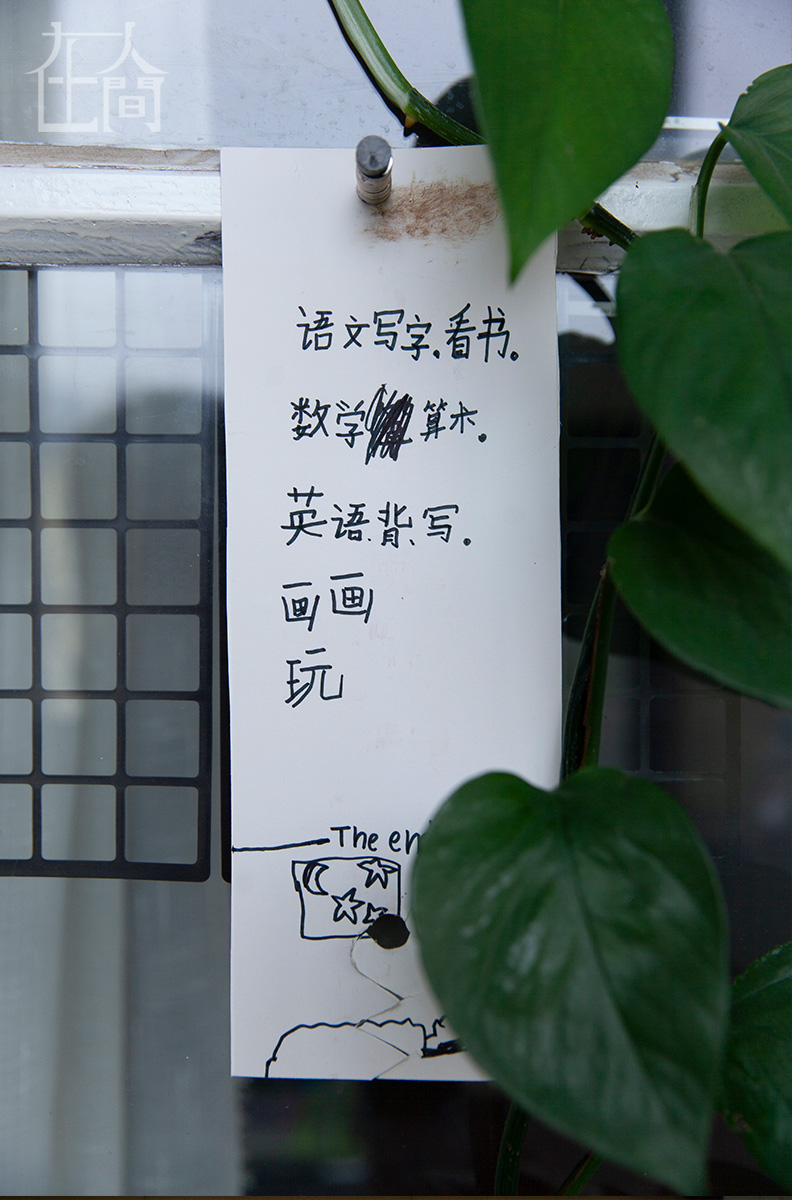 在人間
语文写字.看书。
数学 算术。
英语、背、写。
画画
玩
The en